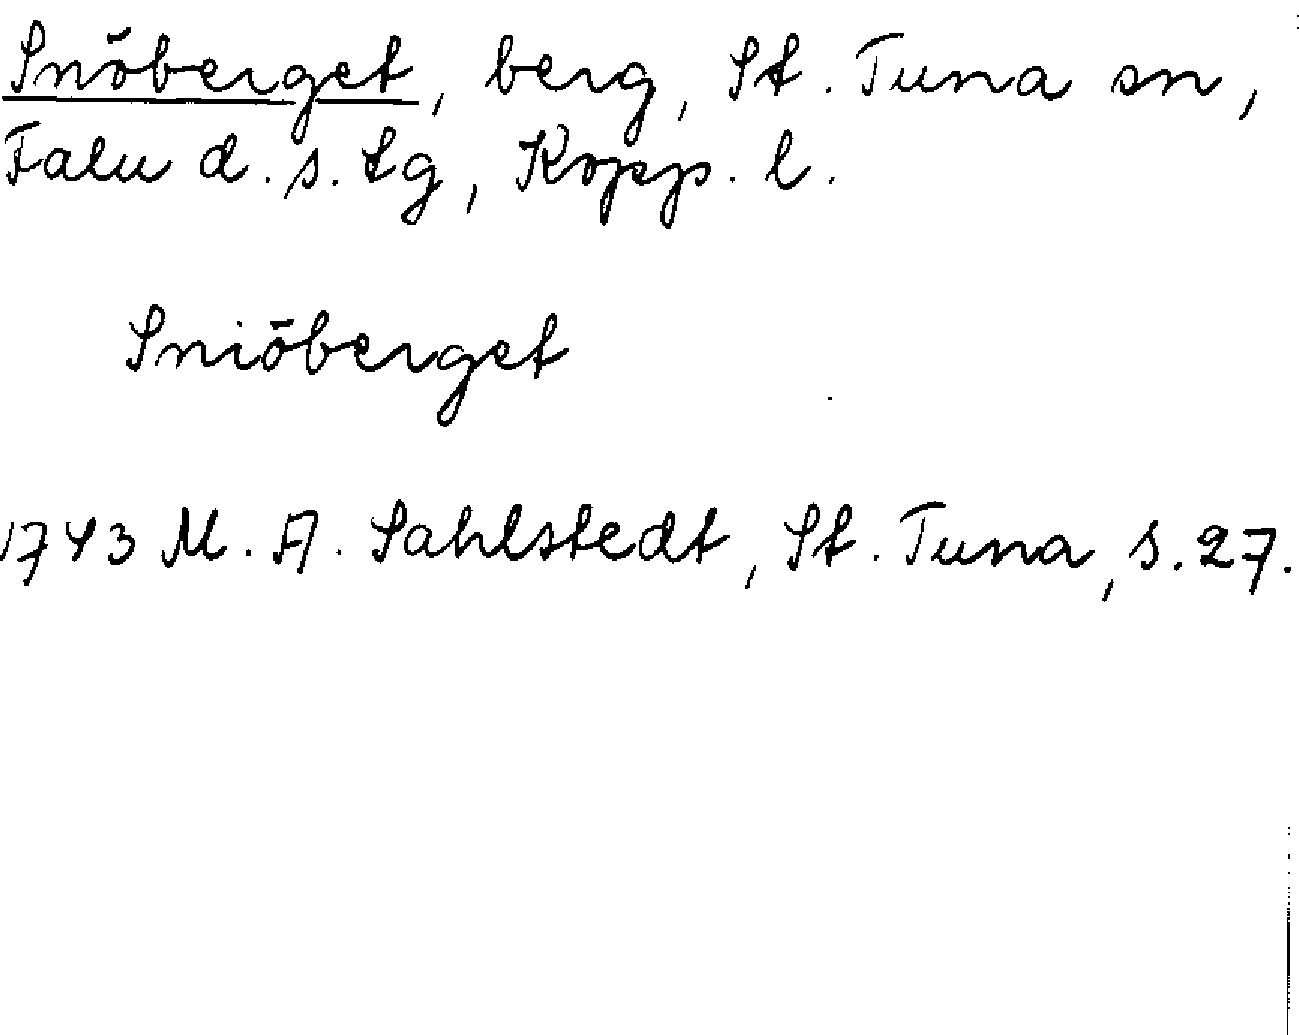 Snöberget, berg, St. Tuna sn,
Falu d. s. tg, Kopp. l.
Sniöberget
1743 M. A. Sahlstedt, St. Tuna, s. 27.